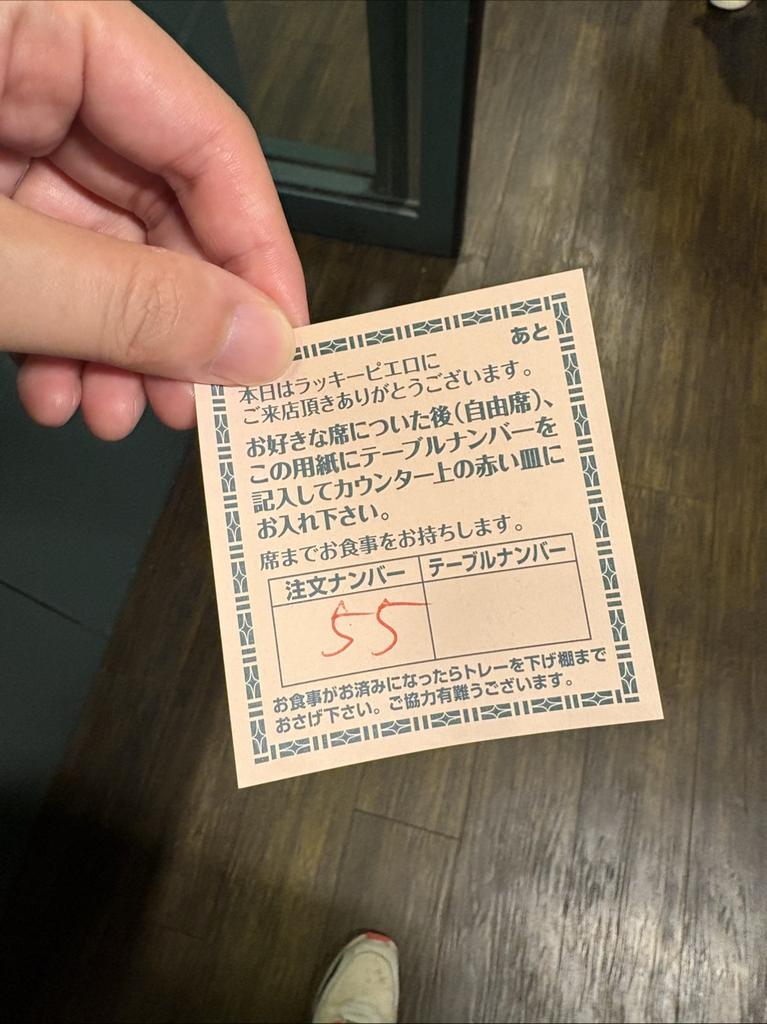 あと
本日はラッキーピエロに
ご来店頂きありがとうございます。
お好きな席についた後(自由席)、
この用紙にテーブルナンバーを
記入してカウンター上の赤い皿に
お入れ下さい。
席までお食事をお持ちします。
注文ナンバー テーブルナンバー
55
お食事がお済みになったらトレーを下げ棚まで
おさげ下さい。ご協力有難うございます。